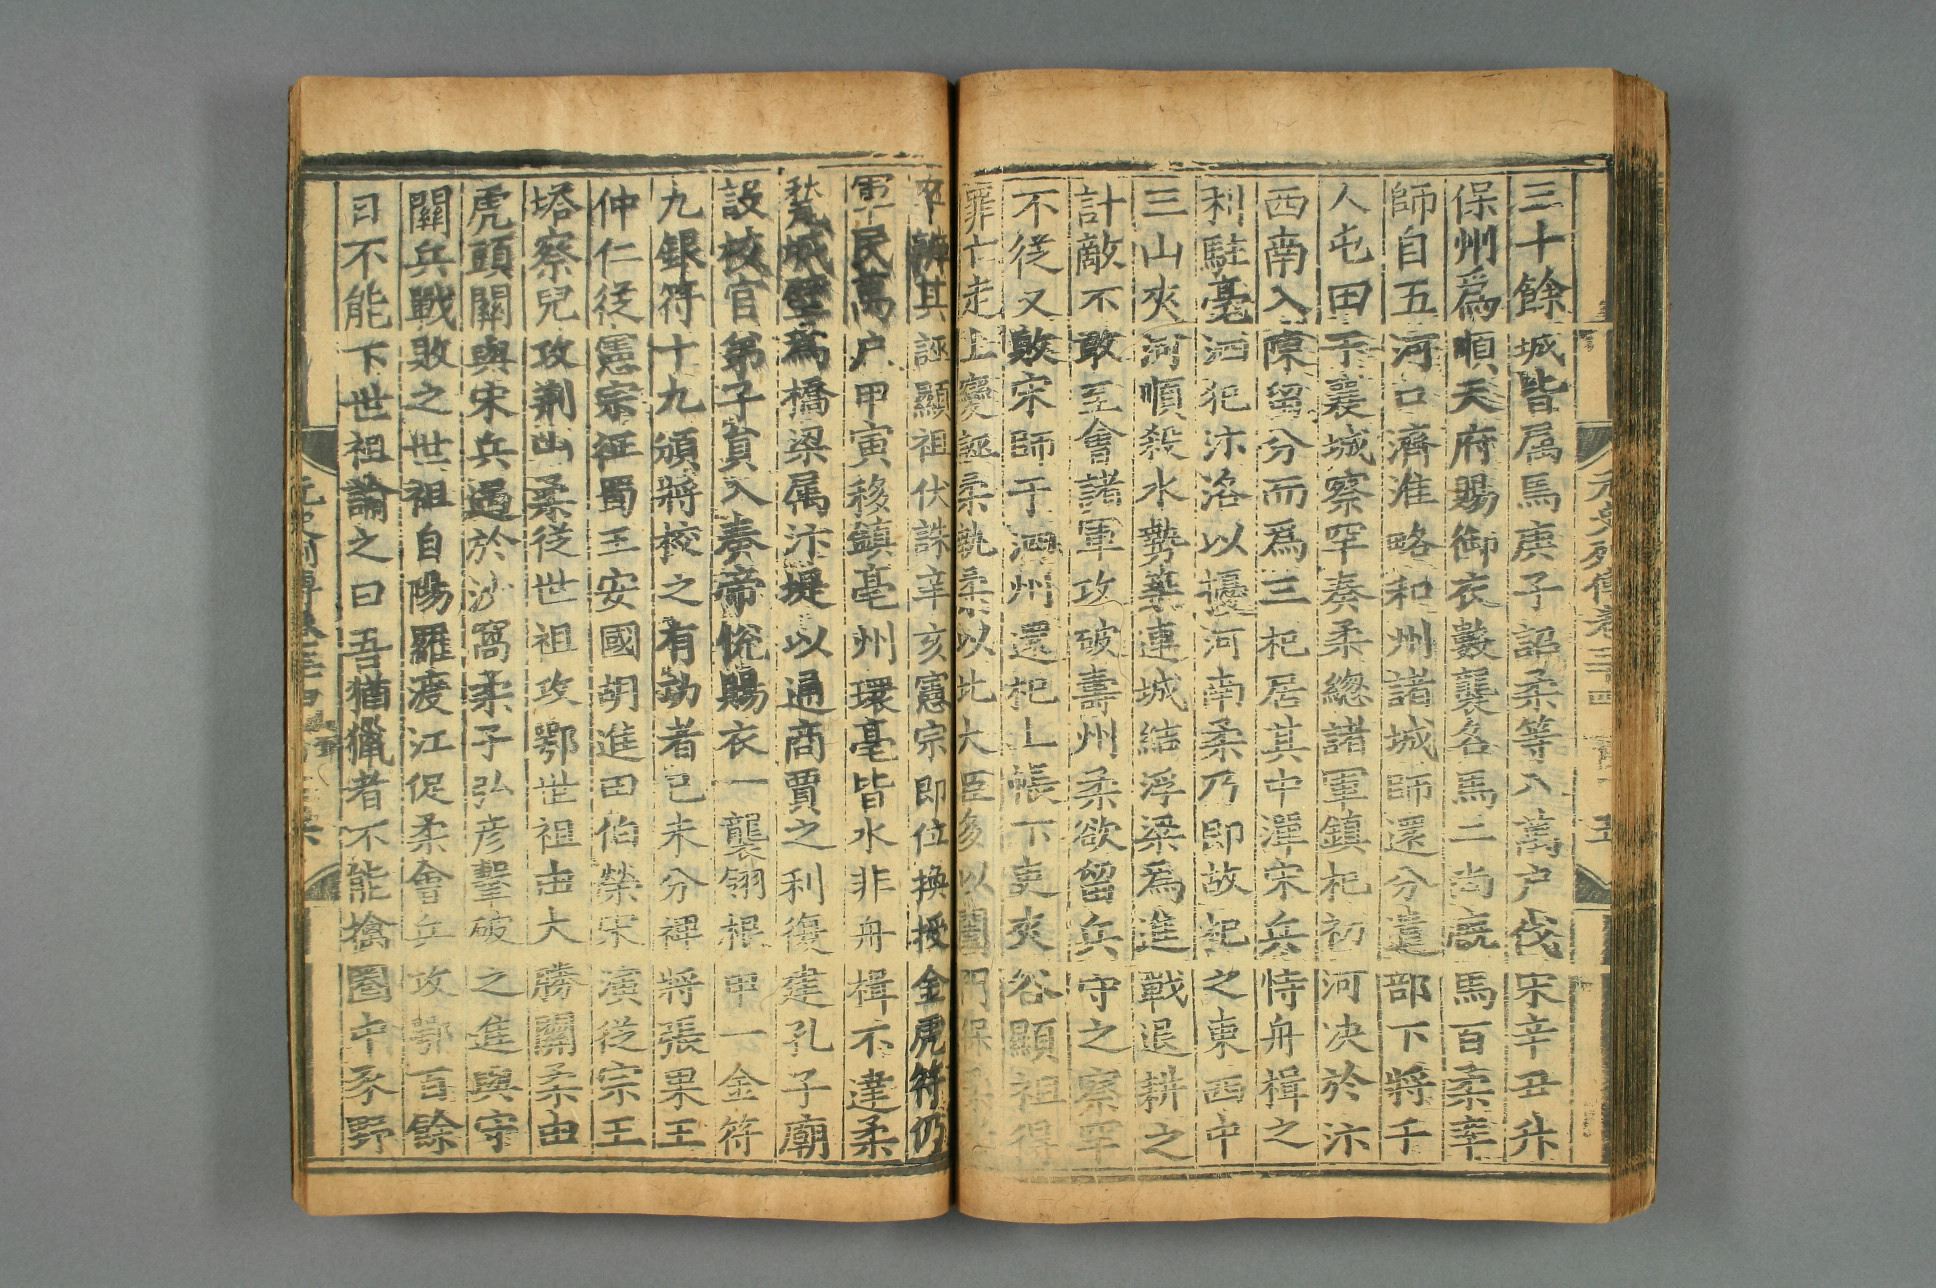 三十餘城皆属焉庚子詔柔等八萬户伐宋辛丑升
保州爲順天府賜御衣數襲名馬二尚廐馬百柔率
師自五河口濟淮略和州諸城師還分遣部下將千
人屯田于襄城察罕奏柔緫諸軍鎮杞初河决於汴
西南入陳留分而爲三杞居其中潬宋兵恃舟楫之
利駐亳泗犯汴洛以擾河南柔乃即故杞之東西中
三山夾河順殺水勢築連城結浮梁爲進戰退耕之
計敵不敢至會諸軍攻破壽州柔欲留兵守之察罕
不從又敗宋師于泗州還杞上帳下吏夾谷顯祖得
罪亡走上變誣柔執柔以北大臣多以闔門保柔
卒辨其誣顯祖伏誅辛亥憲宗即位換授金虎符仍
軍民萬户甲寅移鎮亳州環亳皆水非舟楫不達柔
甃城壁爲橋梁属汴堤以通商賈之利復建孔子廟
設校官弟子員入奏帝恱賜衣一襲翎根甲一金符
九銀符十九頒將校之有功者己未分裨將張果王
仲仁從憲宗征蜀王安國胡進田伯榮宋演從宗王
塔察兒攻荆山柔從世祖攻鄂世祖由大勝關柔由
虎頭關與宋兵遇於沙窩柔子弘彦擊破之進與守
關兵戰敗之世祖自陽羅渡江促柔會兵攻鄂百餘
日不能下世祖諭之曰吾猶獵者不能擒圏中豕野
元史列傳卷三十四 五